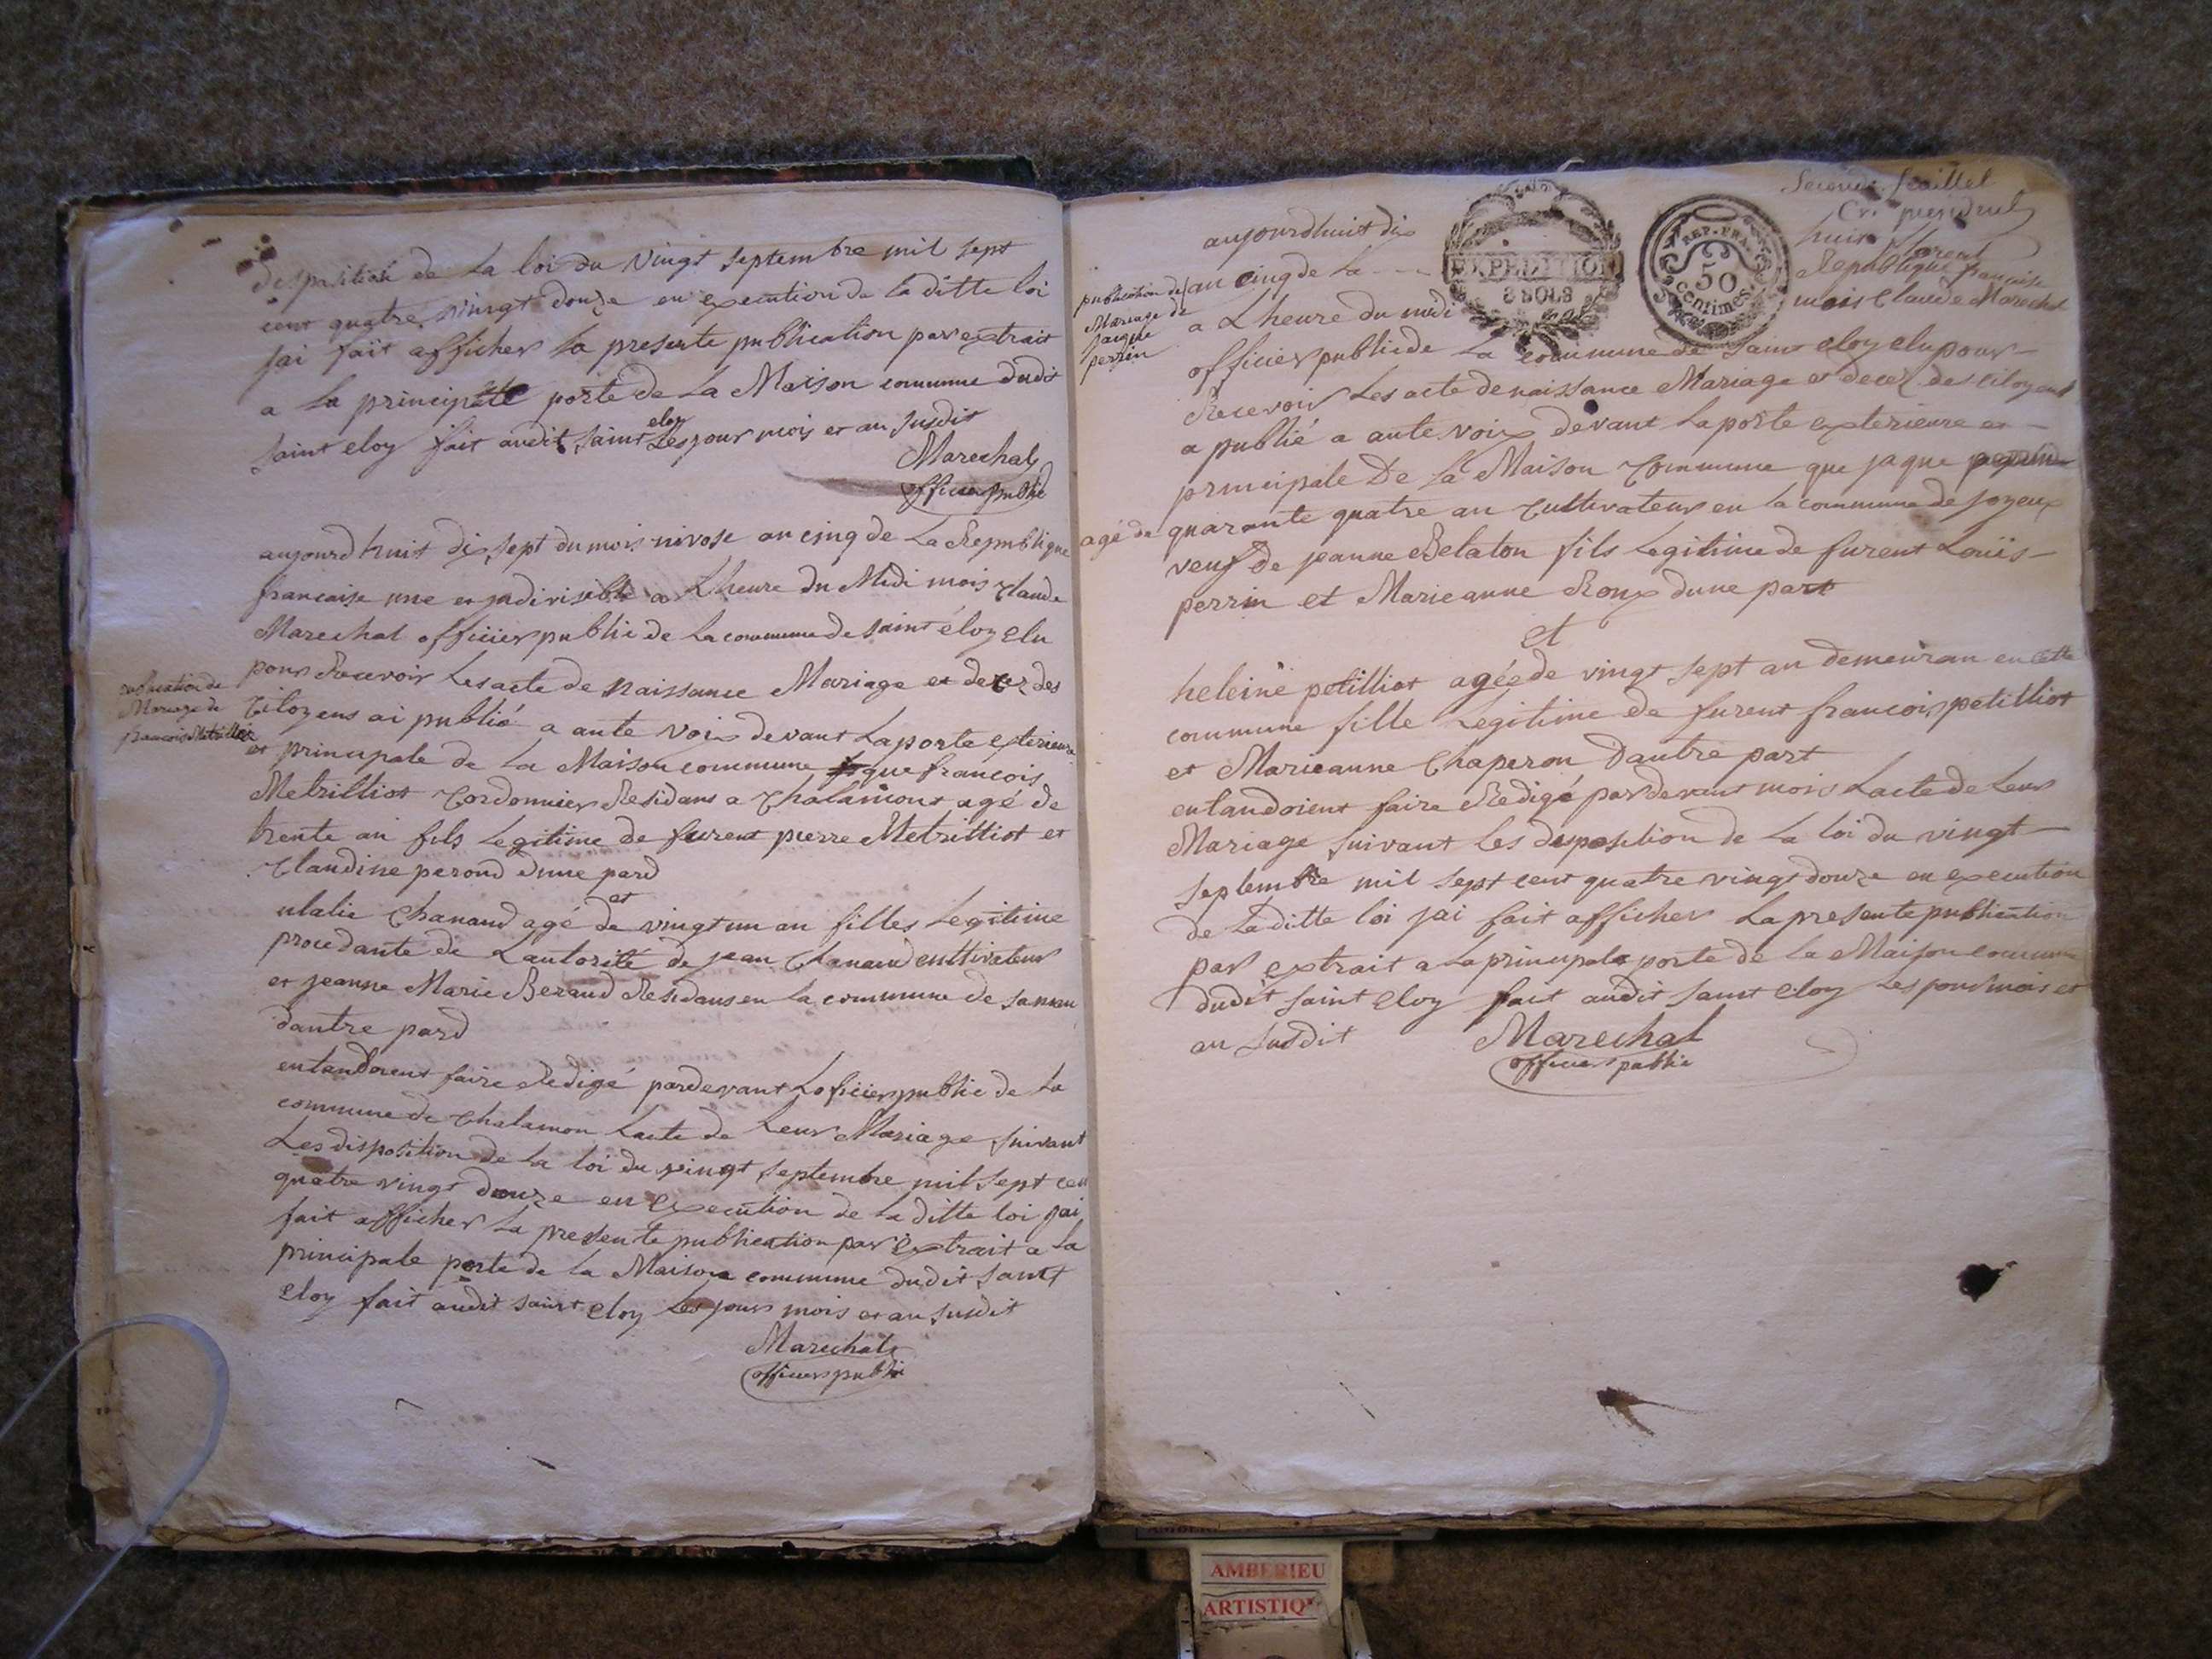 disposition de la loi du vingt septembre mil sept
cent quatre vingt douze en execution de la ditte loi
jai fait afficher la presente publication par extrait
a la principale porte de la Maison commune dudit
saint eloy fait audit saint eloy Les jour mois et an susdit
Marechal
officier public
aujourdhuit dix sept du mois nivose an cinq de La Republique
francaise une et jndivisible a Lheure du Midi mois Claude
Marechal officier public de la commune de saint éloy elu
pour Recevoir Les acte de naissance Mariage et decez des
publication de
Mariage de
francois Metrilliot
Citoyens ai publié a aute voix devant La porte exterieure
et principale de la Maison commune que francois
Metrilliot Cordonnier Residans a Chalamont agé de
trente an fils Legitime de furent pierre Metrilliot et
Claudine perond dune pard
et
ulalie Chanaud agé de vingt un an filles Legitime
procedante de Lautorité de jean Chanaud cultivateur
et jeanne Marie Beraud Residans en La commune de
dautre pard
entandoient faire Redigé pardevant Loficier public de La
commune de Chalamon Lacte de Leur Mariage suivant
Les disposition de La loi du vingt septembre mil sept cen
quatre vingt douze en execution de La ditte loi jai
fait afficher La presente publication par extrait a La
principale porte de La Maison commune dudit saint
eloy fait audit saint eloy Les jour mois et an susdit
Marechal
officier public
Second feuillet
aujourdhuit dix huit
publication de
Mariage de
jacque
perrin
an cinq de La Republique francaise
EXPEDITION
8 SOLS
REP. FRA.
50
centimes
a Lheure du midi mois Claude Marechal
officier public de La commune de saint eloy elu pour
Recevoir Les acte de naissance Mariage et decez des citoyens
a publié a aute voix devant La porte exterieure et
principale De la Maison Commune que jaque
agé de quarante quatre an Cultivateur en la commune de joyeux
veuf de jeanne Belaton fils Legitime de furent Louis
perrin et Marieanne Roux dune part
et
heleine petilliot agée de vingt sept an demeuran en cette
commune fille Legitime de furent francois petilliot
et Marieanne Chaperon Dautre part
entandoient faire Redigé pardevant mois Lacte de Leur
Mariage suivant les disposition de La loi du vingt
septembre mil sept cent quatre vingt douze en execution
de La ditte loi jai fait afficher La presente publication
par extrait a La principale porte de La Maison commune
dudit saint eloy fait audit saint eloy Les jour mois et
an susdit
Marechal
officier public
AMBERIEU
ARTISTIQ